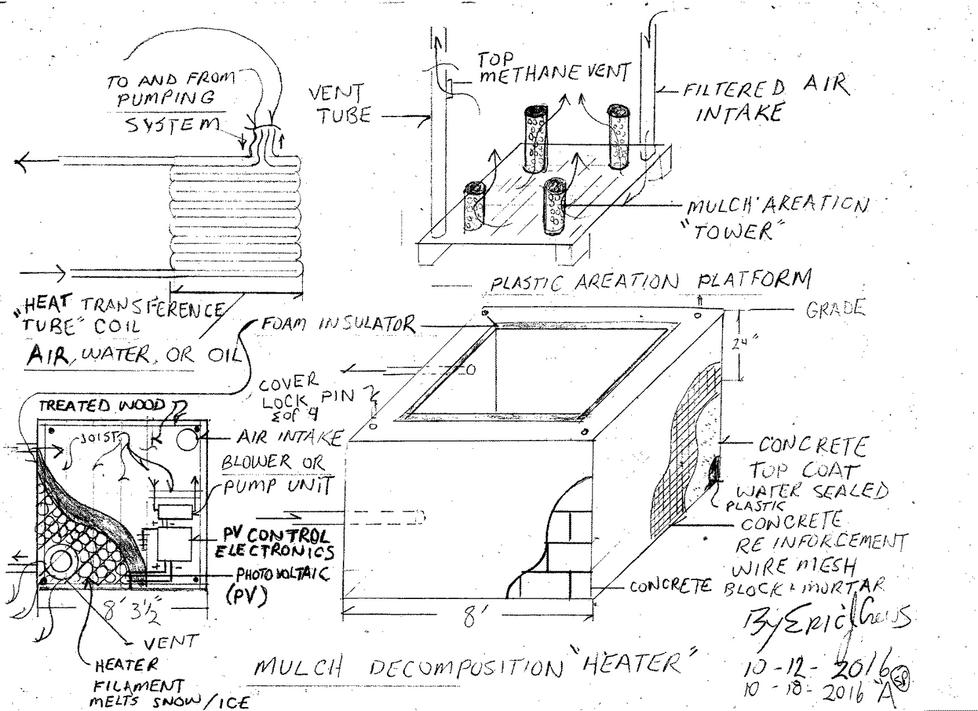 TO AND FROM
PUMPING
SYSTEM
VENT
TUBE
TOP
METHANE VENT
FILTERED AIR
INTAKE
MULCH AREATION
"TOWER"
PLASTIC AREATION PLATFORM
"HEAT TRANSFERENCE
TUBE" COIL
AIR, WATER, OR OIL
FOAM INSULATOR
GRADE
24"
COVER
LOCK PIN
2 of 4
TREATED WOOD
JOIST
AIR INTAKE
BLOWER OR
PUMP UNIT
PV CONTROL
ELECTRONICS
PHOTOVOLTAIC
(PV)
8' 3½"
VENT
HEATER
FILAMENT
MELTS SNOW/ICE
8'
CONCRETE
TOP COAT
WATER SEALED
PLASTIC
CONCRETE
REINFORCEMENT
WIRE MESH
CONCRETE BLOCK & MORTAR
MULCH DECOMPOSITION "HEATER"
By ERIC
10-12-2016
10-18-2016 "A"